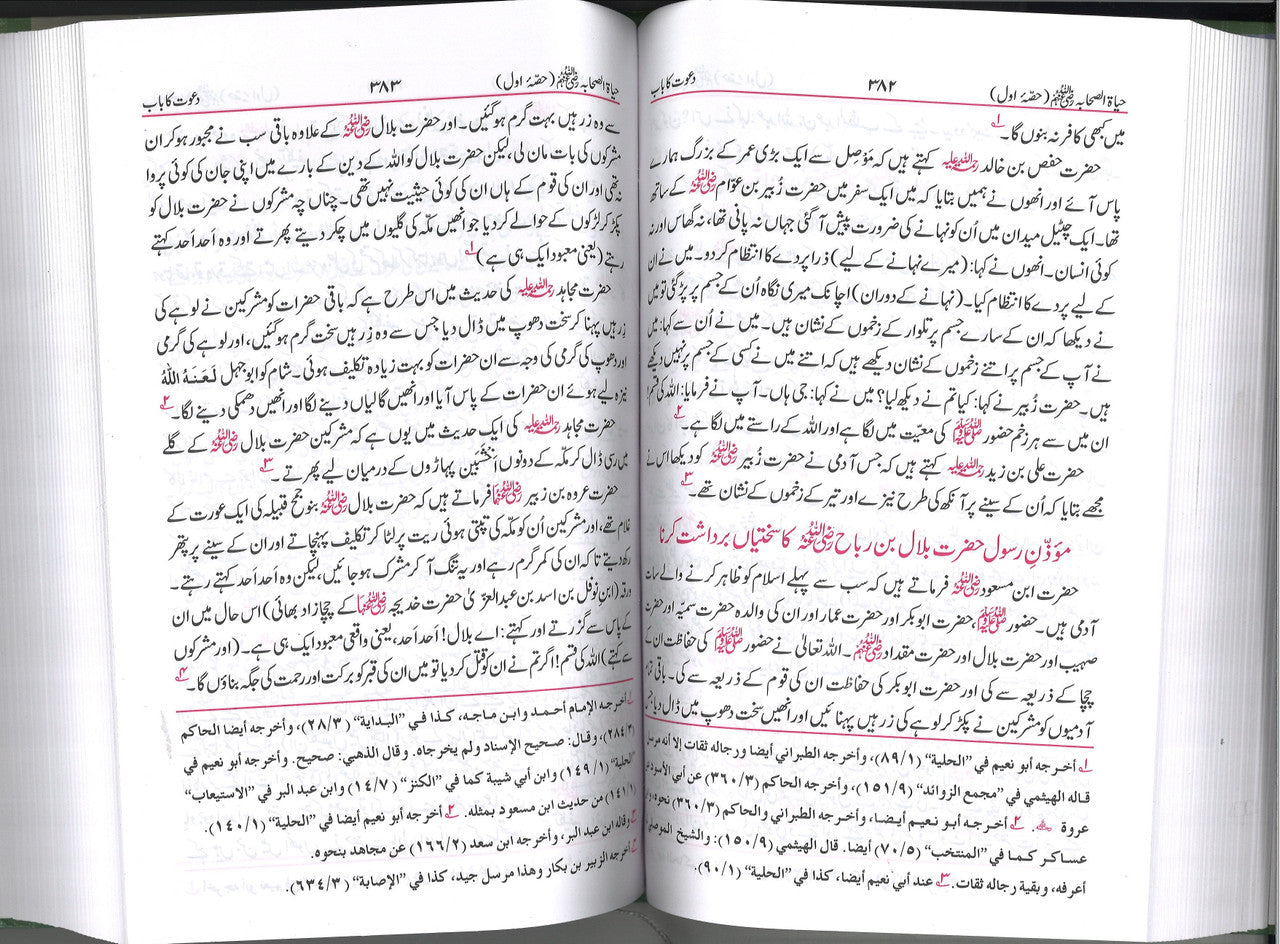 حیاۃ الصحابہ رضی اللہ عنہم (حصّۂ اول) ۳۸۲ دعوت کا باب
میں کبھی کافر نہ بنوں گا۔ ۱
حضرت حفص بن خالد رحمۃ اللہ علیہ کہتے ہیں کہ مَوصِل سے ایک بڑی عمر کے بزرگ ہمارے
پاس آئے اور انھوں نے ہمیں بتایا کہ میں ایک سفر میں حضرت زُبیر بن عوّام رضی اللہ عنہ کے ساتھ
تھا۔ ایک چٹیل میدان میں اُن کو نہانے کی ضرورت پیش آ گئی جہاں نہ پانی تھا، نہ گھاس اور نہ
کوئی انسان۔ انھوں نے کہا: (میرے نہانے کے لیے) ذرا پردے کا انتظام کر دو۔ میں نے ان
کے لیے پردے کا انتظام کیا۔ (نہانے کے دوران) اچانک میری نگاہ اُن کے جسم پر پڑ گئی تو میں
نے دیکھا کہ ان کے سارے جسم پر تلوار کے زخموں کے نشان ہیں۔ میں نے اُن سے کہا: میں
نے آپ کے جسم پر اتنے زخموں کے نشان دیکھے ہیں کہ اتنے میں نے کسی کے جسم پر نہیں دیکھے
ہیں۔ حضرت زُبیر نے کہا: کیا تم نے دیکھ لیا؟ میں نے کہا: جی ہاں۔ آپ نے فرمایا: اللہ کی قسم!
ان میں سے ہر زخم حضور ﷺ کی معیّت میں لگا ہے اور اللہ کے راستے میں لگا ہے۔ ۲
حضرت علی بن زید رحمۃ اللہ علیہ کہتے ہیں کہ جس آدمی نے حضرت زُبیر رضی اللہ عنہ کو دیکھا اس نے
مجھے بتایا کہ اُن کے سینے پر آنکھ کی طرح نیزے اور تیر کے زخموں کے نشان تھے۔ ۳
مؤذّنِ رسول حضرت بلال بن رباح رضی اللہ عنہ کا سختیاں برداشت کرنا
حضرت ابن مسعود رضی اللہ عنہ فرماتے ہیں کہ سب سے پہلے اسلام کو ظاہر کرنے والے سات
آدمی ہیں۔ حضور ﷺ، حضرت ابوبکر اور حضرت عمار اور ان کی والدہ حضرت سمیّہ اور حضرت
صہیب اور حضرت بلال اور حضرت مقداد رضی اللہ عنہم۔ اللہ تعالیٰ نے حضور ﷺ کی حفاظت ان کے
چچا کے ذریعہ سے کی اور حضرت ابوبکر کی حفاظت ان کی قوم کے ذریعہ سے کی۔ باقی تمام
آدمیوں کو مشرکین نے پکڑ کر لوہے کی زرہیں پہنائیں اور انھیں سخت دھوپ میں ڈال دیا جس
۱ أخرجه أبو نعيم في "الحلية" (۸۹/۱)، وأخرجه الطبراني أيضا ورجاله ثقات إلا أنه مرسل
قاله الهيثمي في "مجمع الزوائد" (۱۵۱/۹)، وأخرجه الحاكم (۳۶۰/۳) عن أبي الأسود عن
عروة. ۲ أخرجه أبو نعيم أيضا، وأخرجه الطبراني والحاكم (۳۶۰/۳) نحوه، وابن
عساكر كما في "المنتخب" (۷۰/۵) أيضا. قال الهيثمي (۱۵۰/۹): والشيخ الموصلي
أعرفه، وبقية رجاله ثقات. ۳ عند أبي نعيم أيضا، كذا في "الحلية" (۹۰/۱).
حیاۃ الصحابہ رضی اللہ عنہم (حصّۂ اول) ۳۸۳ دعوت کا باب
سے وہ زرہیں بہت گرم ہو گئیں۔ اور حضرت بلال رضی اللہ عنہ کے علاوہ باقی سب نے مجبور ہو کر ان
مشرکوں کی بات مان لی، لیکن حضرت بلال کو اللہ کے دین کے بارے میں اپنی جان کی کوئی پروا
نہ تھی اور ان کی قوم کے ہاں ان کی کوئی حیثیت نہیں تھی۔ چناں چہ مشرکوں نے حضرت بلال کو
پکڑ کر لڑکوں کے حوالے کر دیا جو انھیں مکّہ کی گلیوں میں چکر دیتے پھرتے اور وہ اَحد اَحد کہتے
رہتے (یعنی معبود ایک ہی ہے) ۱
حضرت مجاہد رحمۃ اللہ علیہ کی حدیث میں اس طرح ہے کہ باقی حضرات کو مشرکین نے لوہے کی
زرہیں پہنا کر سخت دھوپ میں ڈال دیا جس سے وہ زِرہیں سخت گرم ہو گئیں، اور لوہے کی گرمی
اور دھوپ کی گرمی کی وجہ سے ان حضرات کو بہت زیادہ تکلیف ہوئی۔ شام کو ابوجہل لَعَنَہُ اللّٰہُ
نیزہ لیے ہوئے ان حضرات کے پاس آیا اور انھیں گالیاں دینے لگا اور انھیں دھمکی دینے لگا۔ ۲
حضرت مجاہد رحمۃ اللہ علیہ کی ایک حدیث میں یوں ہے کہ مشرکین حضرت بلال رضی اللہ عنہ کے گلے
میں رسی ڈال کر مکّہ کے دونوں اَخشَبَین پہاڑوں کے درمیان لیے پھرتے۔ ۳
حضرت عروہ بن زبیر رضی اللہ عنہما فرماتے ہیں کہ حضرت بلال رضی اللہ عنہ بنو جُمح قبیلہ کی ایک عورت کے
غلام تھے، اور مشرکین اُن کو مکّہ کی تپتی ہوئی ریت پر لٹا کر تکلیف پہنچاتے اور ان کے سینے پر پتھر
رکھ دیتے تا کہ ان کی کمر گرم رہے اور یہ تنگ آ کر مشرک ہو جائیں، لیکن وہ اَحد اَحد کہتے رہتے۔
ورقہ (ابنِ نوفل بن اسد بن عبدالعزّٰی حضرت خدیجہ رضی اللہ عنہا کے چچا زاد بھائی) اس حال میں ان
کے پاس سے گزرتے اور کہتے: اے بلال! اَحد اَحد، یعنی واقعی معبود ایک ہی ہے۔ (اور مشرکوں
سے کہتے) اللہ کی قسم! اگر تم نے ان کو قتل کر دیا تو میں ان کی قبر کو برکت اور رحمت کی جگہ بناؤں گا۔ ۴
۱ أخرجه الإمام أحمد وابن ماجه، كذا في "البداية" (۲۸/۳)، وأخرجه أيضا الحاكم
(۲۸۴/۳)، وقال: صحيح الإسناد ولم يخرجاه. وقال الذهبي: صحيح. وأخرجه أبو نعيم في
"الحلية" (۱۴۹/۱) وابن أبي شيبة كما في "الكنز" (۱۴/۷) وابن عبد البر في "الاستيعاب"
(۱۴۱/۱) من حديث ابن مسعود بمثله. ۲ أخرجه أبو نعيم أيضا في "الحلية" (۱۴۰/۱).
۳ وقاله ابن عبد البر، وأخرجه ابن سعد (۱۶۶/۲) عن مجاهد بنحوه.
۴ أخرجه الزبير بن بكار وهذا مرسل جيد، كذا في "الإصابة" (۶۳۴/۳).